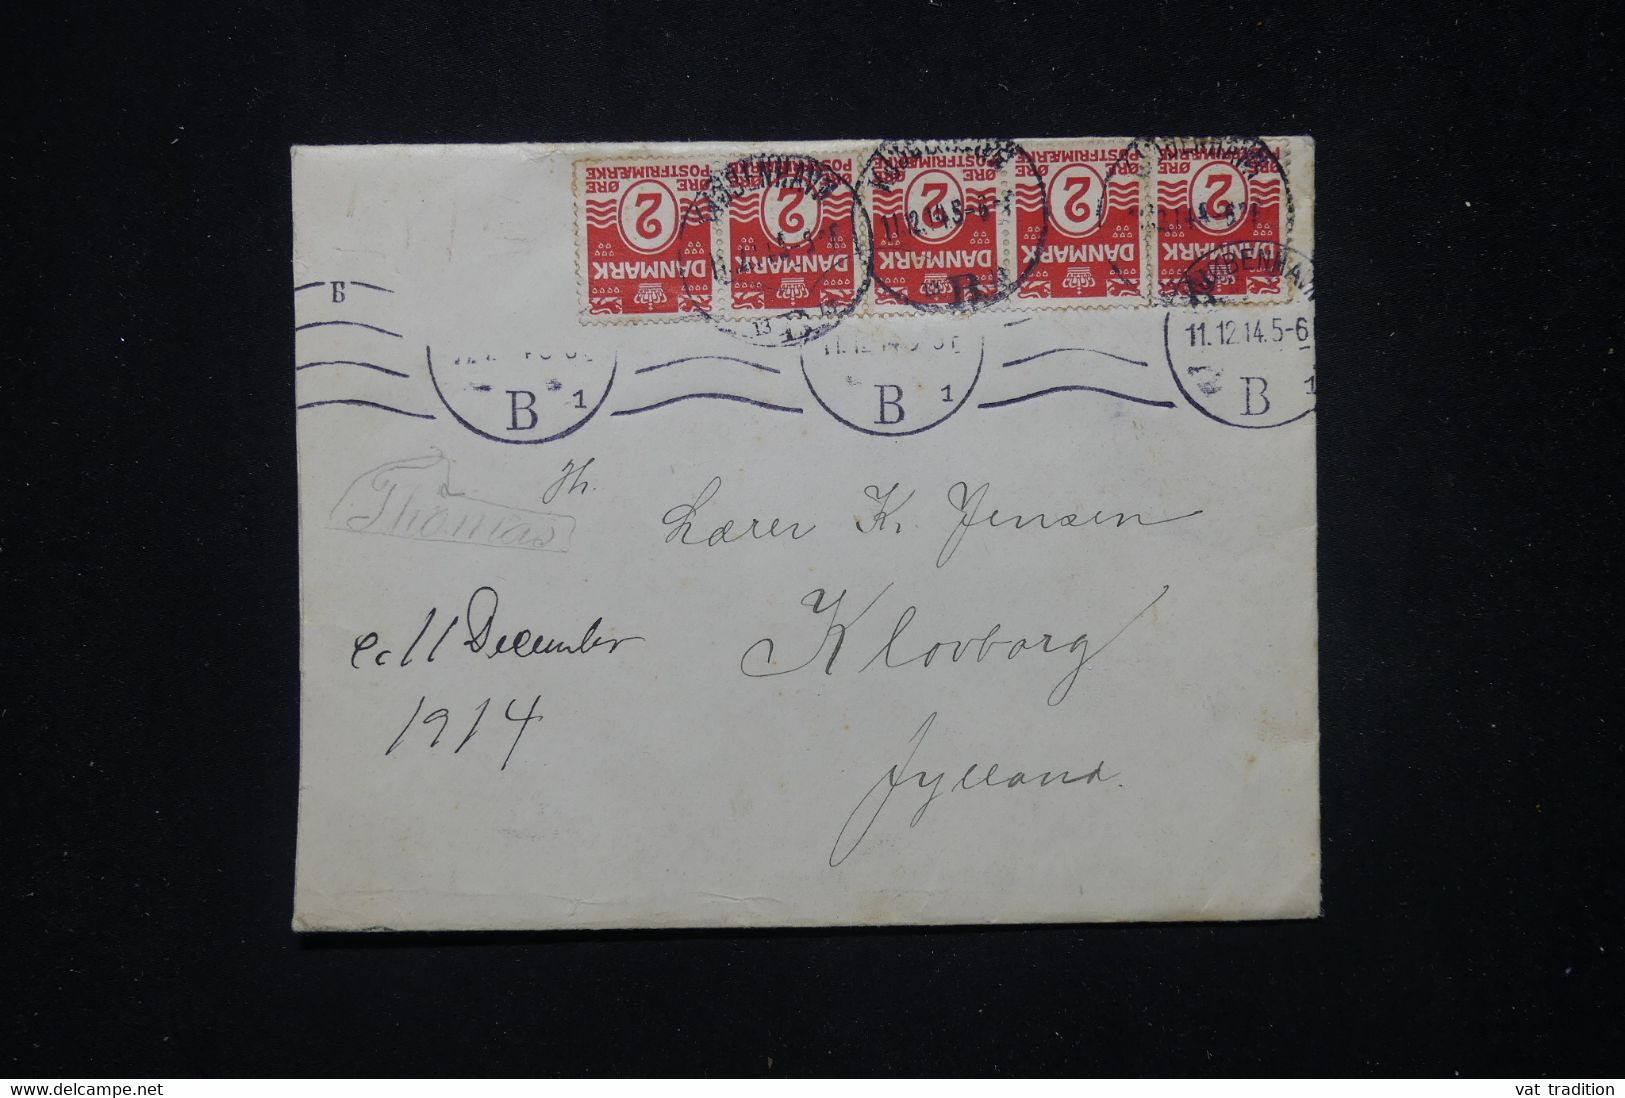 2 2 2 2 2
DANMARK DANMARK DANMARK DANMARK DANMARK
POSTFRIMÆRKE POSTFRIMÆRKE POSTFRIMÆRKE POSTFRIMÆRKE POSTFRIMÆRKE
ØRE ØRE ØRE ØRE ØRE
KJØBENHAVN
11.12.14.5-6
B
B
KJØBENHAVN
11.12.14.5-6
B 1 B 1 B 1
Thomas
Hr.
Lærer K. Jensen
Klovborg
Jylland.
11 December
1914
www.delcampe.net
vat_tradition